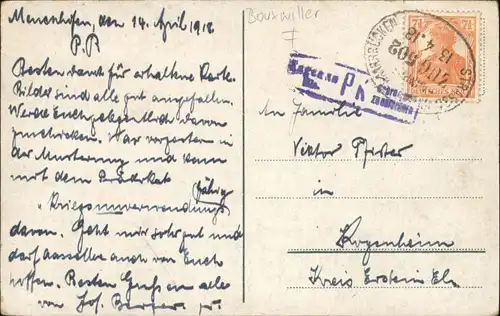 Menchhofen, den 14. April 1918
P.P.
Besten Dank für erhaltene Karte.
Bilder sind alle gut ausgefallen.
Werde Euch gelegentlich davon
zuschicken. War vorgestern in
der Musterung und kam
mit dem Prädikat
jährig
"Kriegsunverwendungs
davon. Geht mir sehr gut und
darf dasselbe auch von Euch
hoffen. Besten Gruss an alle
von Jos.
Bouxwiller
7½
An Familie
Viktor Pfister
in
Krogenheim
Kreis Erstein Els.